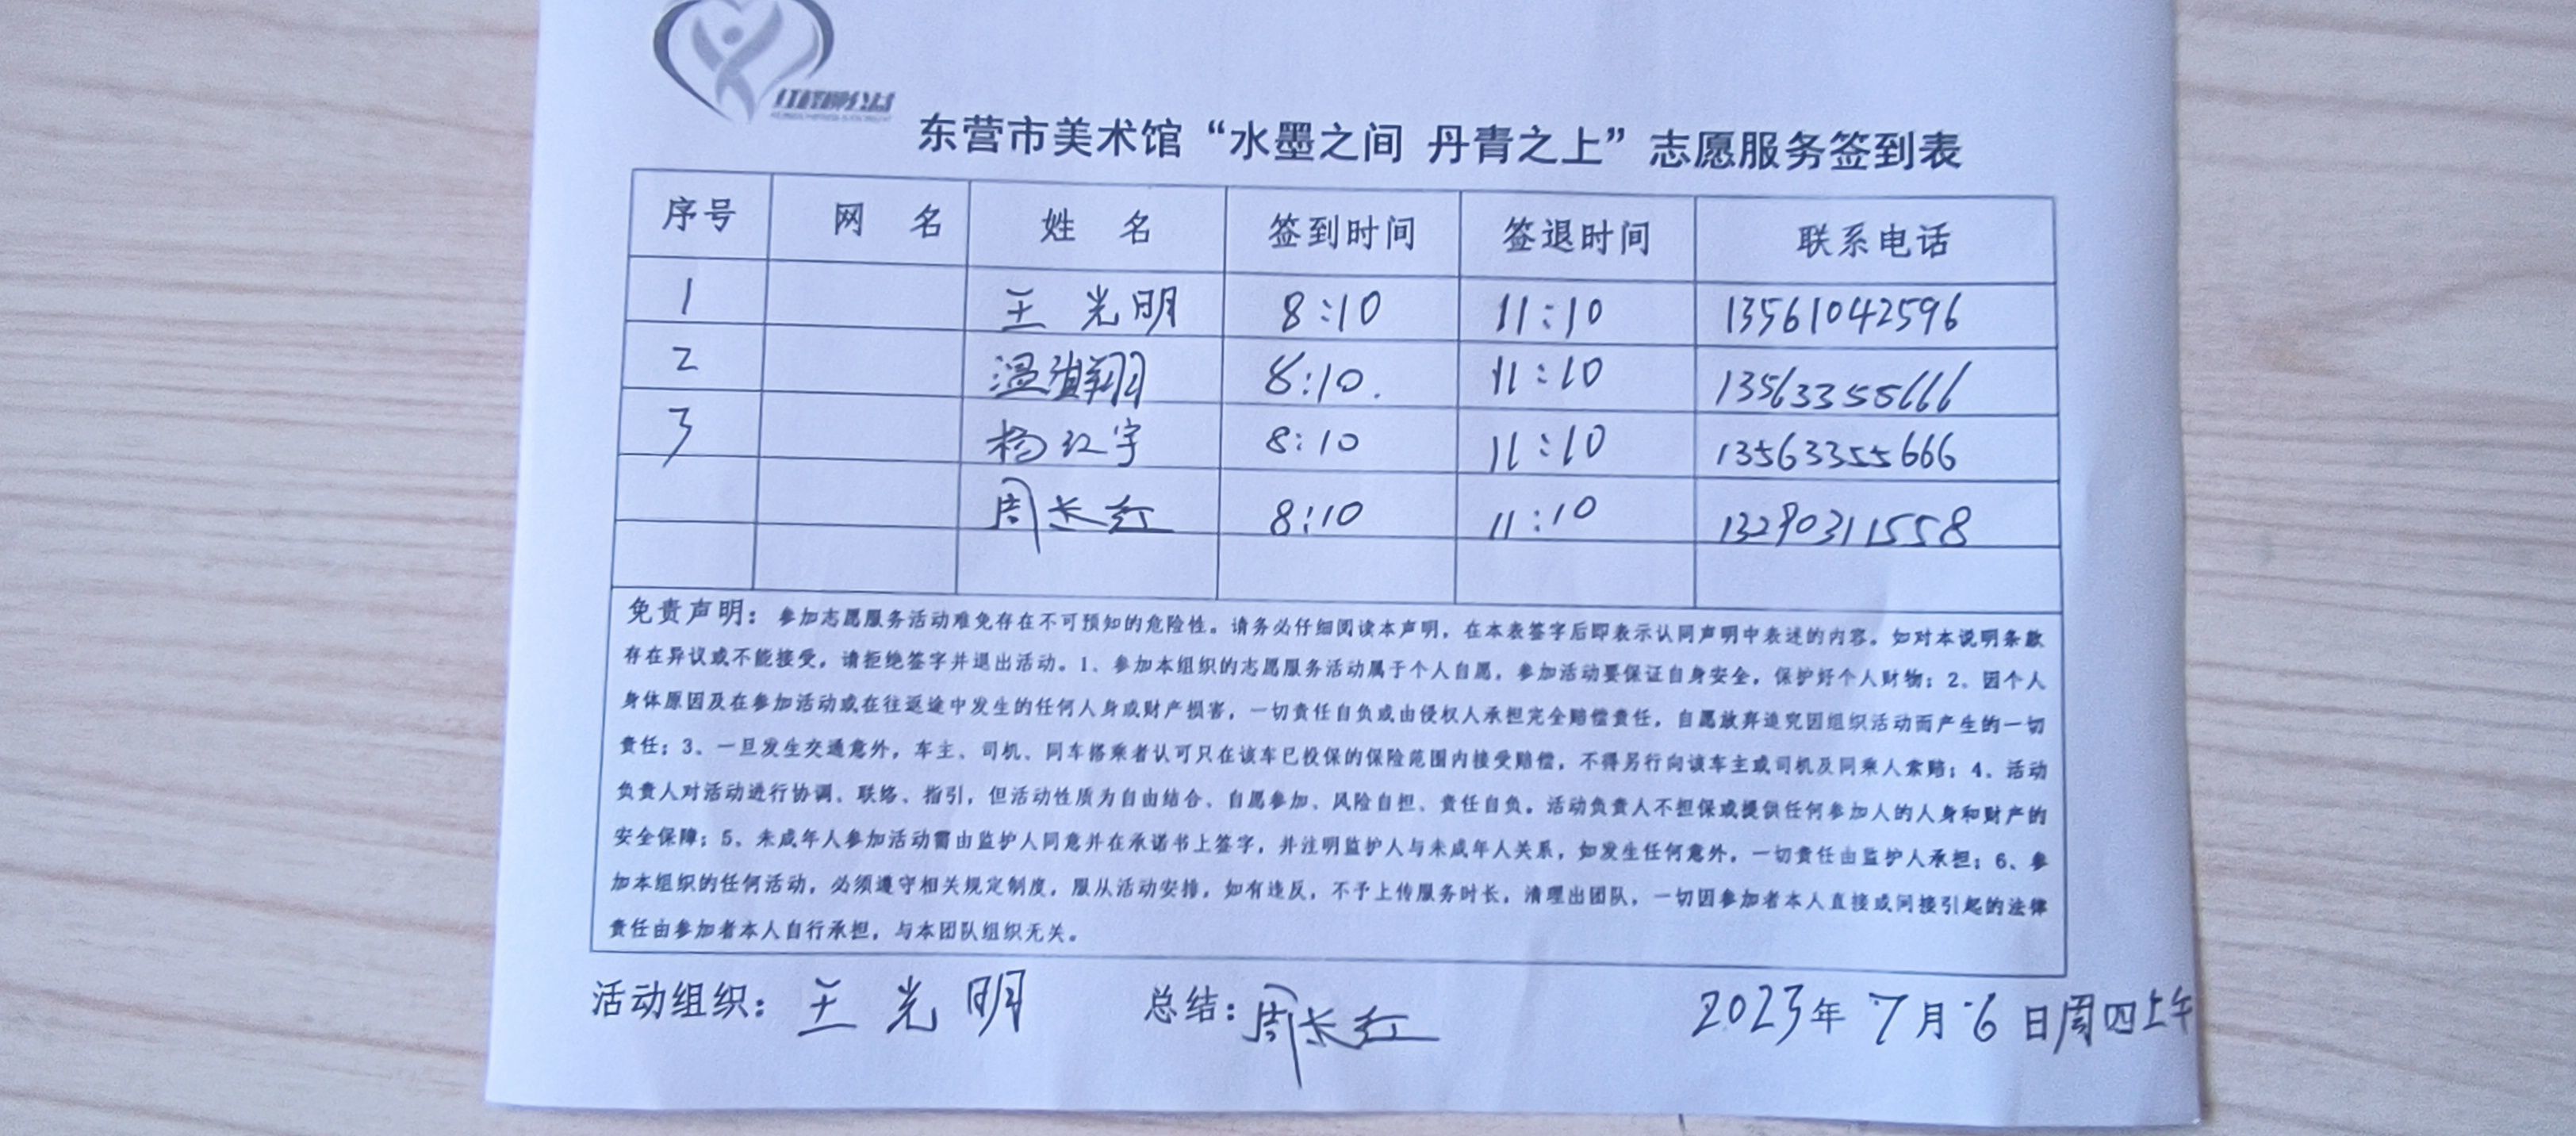 东营市美术馆“水墨之间 丹青之上”志愿服务签到表
序号 网 名 姓 名 签到时间 签退时间 联系电话
1 王光明 8:10 11:10 13561042596
2 温 翔 8:10. 11:10 13563355666
3 杨红宇 8:10 11:10 13563355666
周长红 8:10 11:10 13290311558
免责声明：参加志愿服务活动难免存在不可预知的危险性。请务必仔细阅读本声明，在本表签字后即表示认同声明中表述的内容。如对本说明条款
存在异议或不能接受，请拒绝签字并退出活动。1、参加本组织的志愿服务活动属于个人自愿，参加活动要保证自身安全，保护好个人财物；2、因个人
身体原因及在参加活动或在往返途中发生的任何人身或财产损害，一切责任自负或由侵权人承担完全赔偿责任，自愿放弃追究因组织活动而产生的一切
责任；3、一旦发生交通意外，车主、司机、同车搭乘者认可只在该车已投保的保险范围内接受赔偿，不得另行向该车主或司机及同乘人索赔；4、活动
负责人对活动进行协调、联络、指引，但活动性质为自由结合、自愿参加、风险自担、责任自负。活动负责人不担保或提供任何参加人的人身和财产的
安全保障；5、未成年人参加活动需由监护人同意并在承诺书上签字，并注明监护人与未成年人关系，如发生任何意外，一切责任由监护人承担；6、参
加本组织的任何活动，必须遵守相关规定制度，服从活动安排，如有违反，不予上传服务时长，清理出团队，一切因参加者本人直接或间接引起的法律
责任由参加者本人自行承担，与本团队组织无关。
活动组织：王光明 总结：周长红 2023年7月6日周四上午